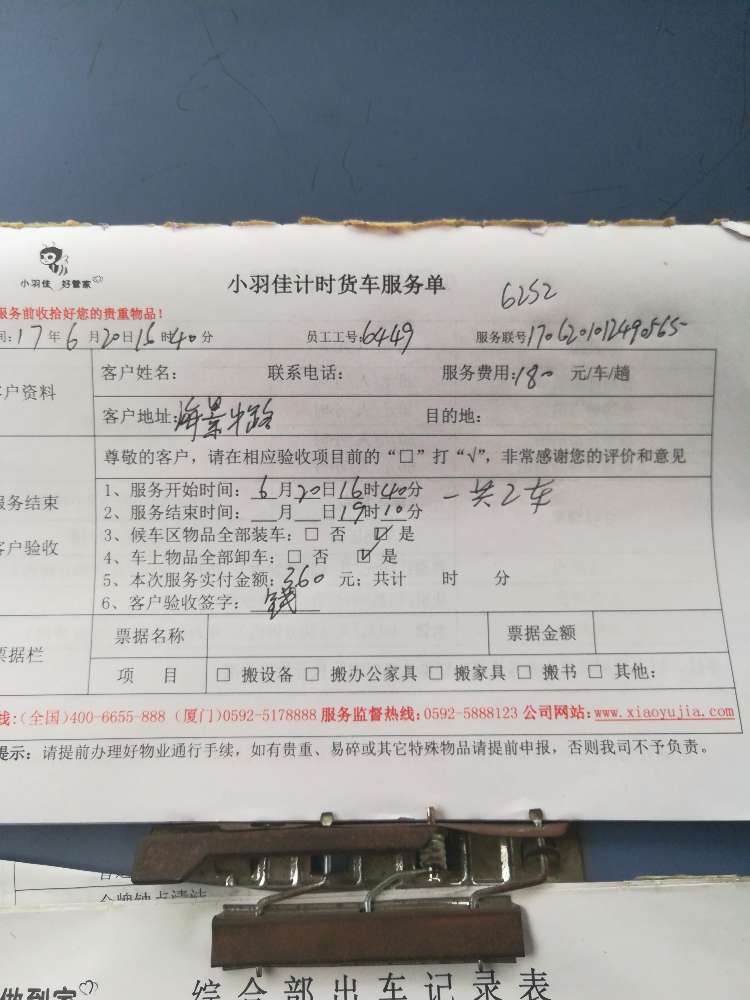 小羽佳 好管家
小羽佳计时货车服务单
6252
服务前收拾好您的贵重物品！
间：17年6月20日16时40分 员工工号：6449 服务联号：1706201012490565
客户资料
客户姓名： 联系电话： 服务费用：180 元/车/趟
客户地址：海景中路 目的地：
尊敬的客户，请在相应验收项目前的“□”打“√”，非常感谢您的评价和意见
服务结束
客户验收
1、服务开始时间：6月20日16时40分 一共2车
2、服务结束时间：__月__日19时10分
3、候车区物品全部装车：□ 否 ☑ 是
4、车上物品全部卸车：□ 否 ☑ 是
5、本次服务实付金额：360 元；共计 时 分
6、客户验收签字：钱
票据栏
票据名称 票据金额
项 目 □ 搬设备 □ 搬办公家具 □ 搬家具 □ 搬书 □ 其他：
线：(全国)400-6655-888 (厦门)0592-5178888 服务监督热线：0592-5888123 公司网站：www.xiaoyujia.com
提示：请提前办理好物业通行手续，如有贵重、易碎或其它特殊物品请提前申报，否则我司不予负责。
做到家
综合部出车记录表